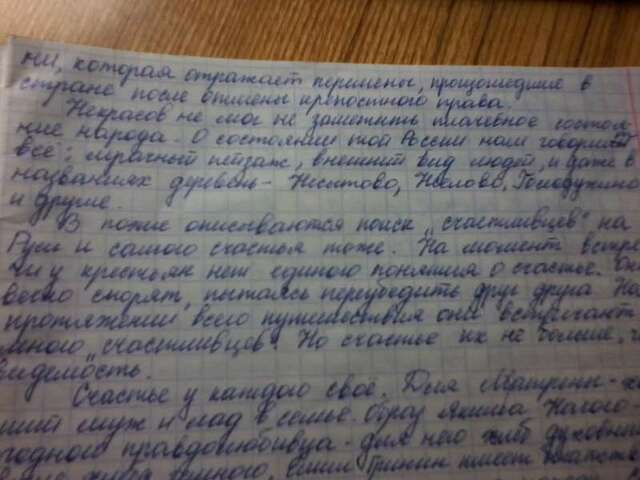 ни, которая отражает перемены, прошошедшие в
стране после отмены крепостного права.
Некрасов не мог не заметить плачевное состоя-
ние народа. О состоянии той России нам говорит
всё: мрачный пейзаж, внешний вид людей, и даже в
названиях деревень - Неелово,
и другие.
В поэме описываются поиск „счастливцев" на
Руси и самого счастья тоже. На момент встре
чи у крестьян нет единого понятия о счастье. Они
вечно спорят, пытаясь переубедить друг друга. На
протяжении всего путешествия они встречают
много „счастливцев". Но счастье их не больше, ч
видемость.
Счастье у каждого своё. Для Матрены - х
ший муж и лад в семье. Образ Якима Нагого -
родного правдолюбивца - для него хлеб духовный
хлеба земного. Ермил Гирин